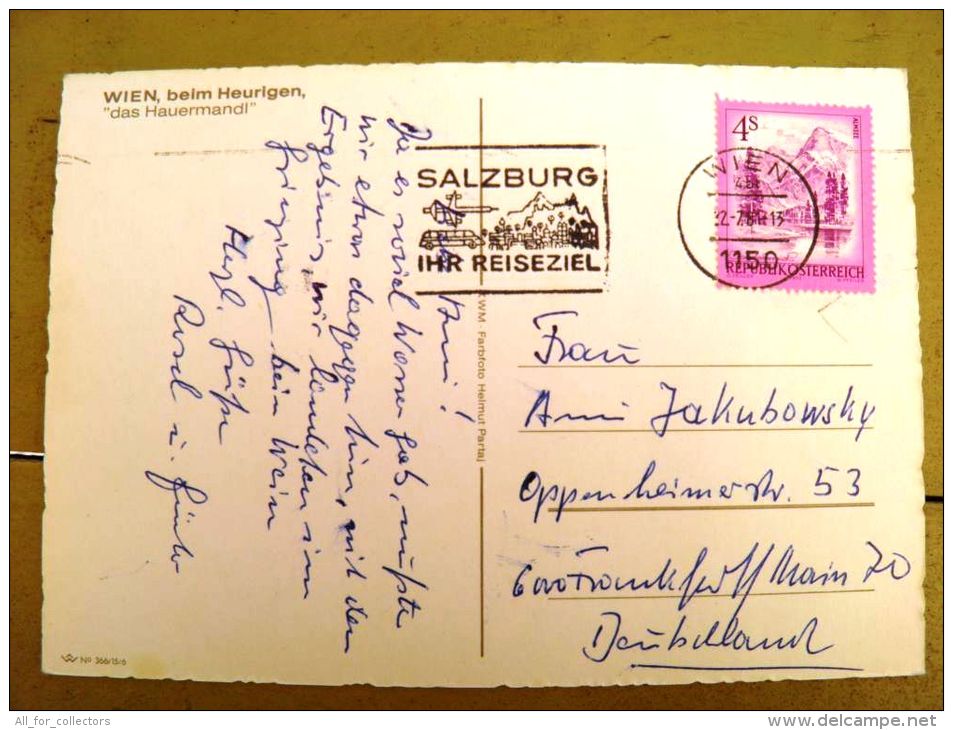 WIEN, beim Heurigen,
"das Hauermandl"
Anni!
Da es soviel Wasser gab, mußte
wir etwas dagegen tun, mit dem
Ergebnis, wir landeten in
Grinzing beim Wein
Herzl. Grüße
Rosel u. Günter
SALZBURG
IHR REISEZIEL
WIEN
1150
4S
ALMSEE
REPUBLIK ÖSTERREICH
KWM Farbfoto Helmut Partaj
Frau
Anni Jakubowsky
Oppenheimerstr. 53
6000 Frankfurt Main 70
Deutschland
No 366/15:6
All_for_collectors
www.delcampe.net